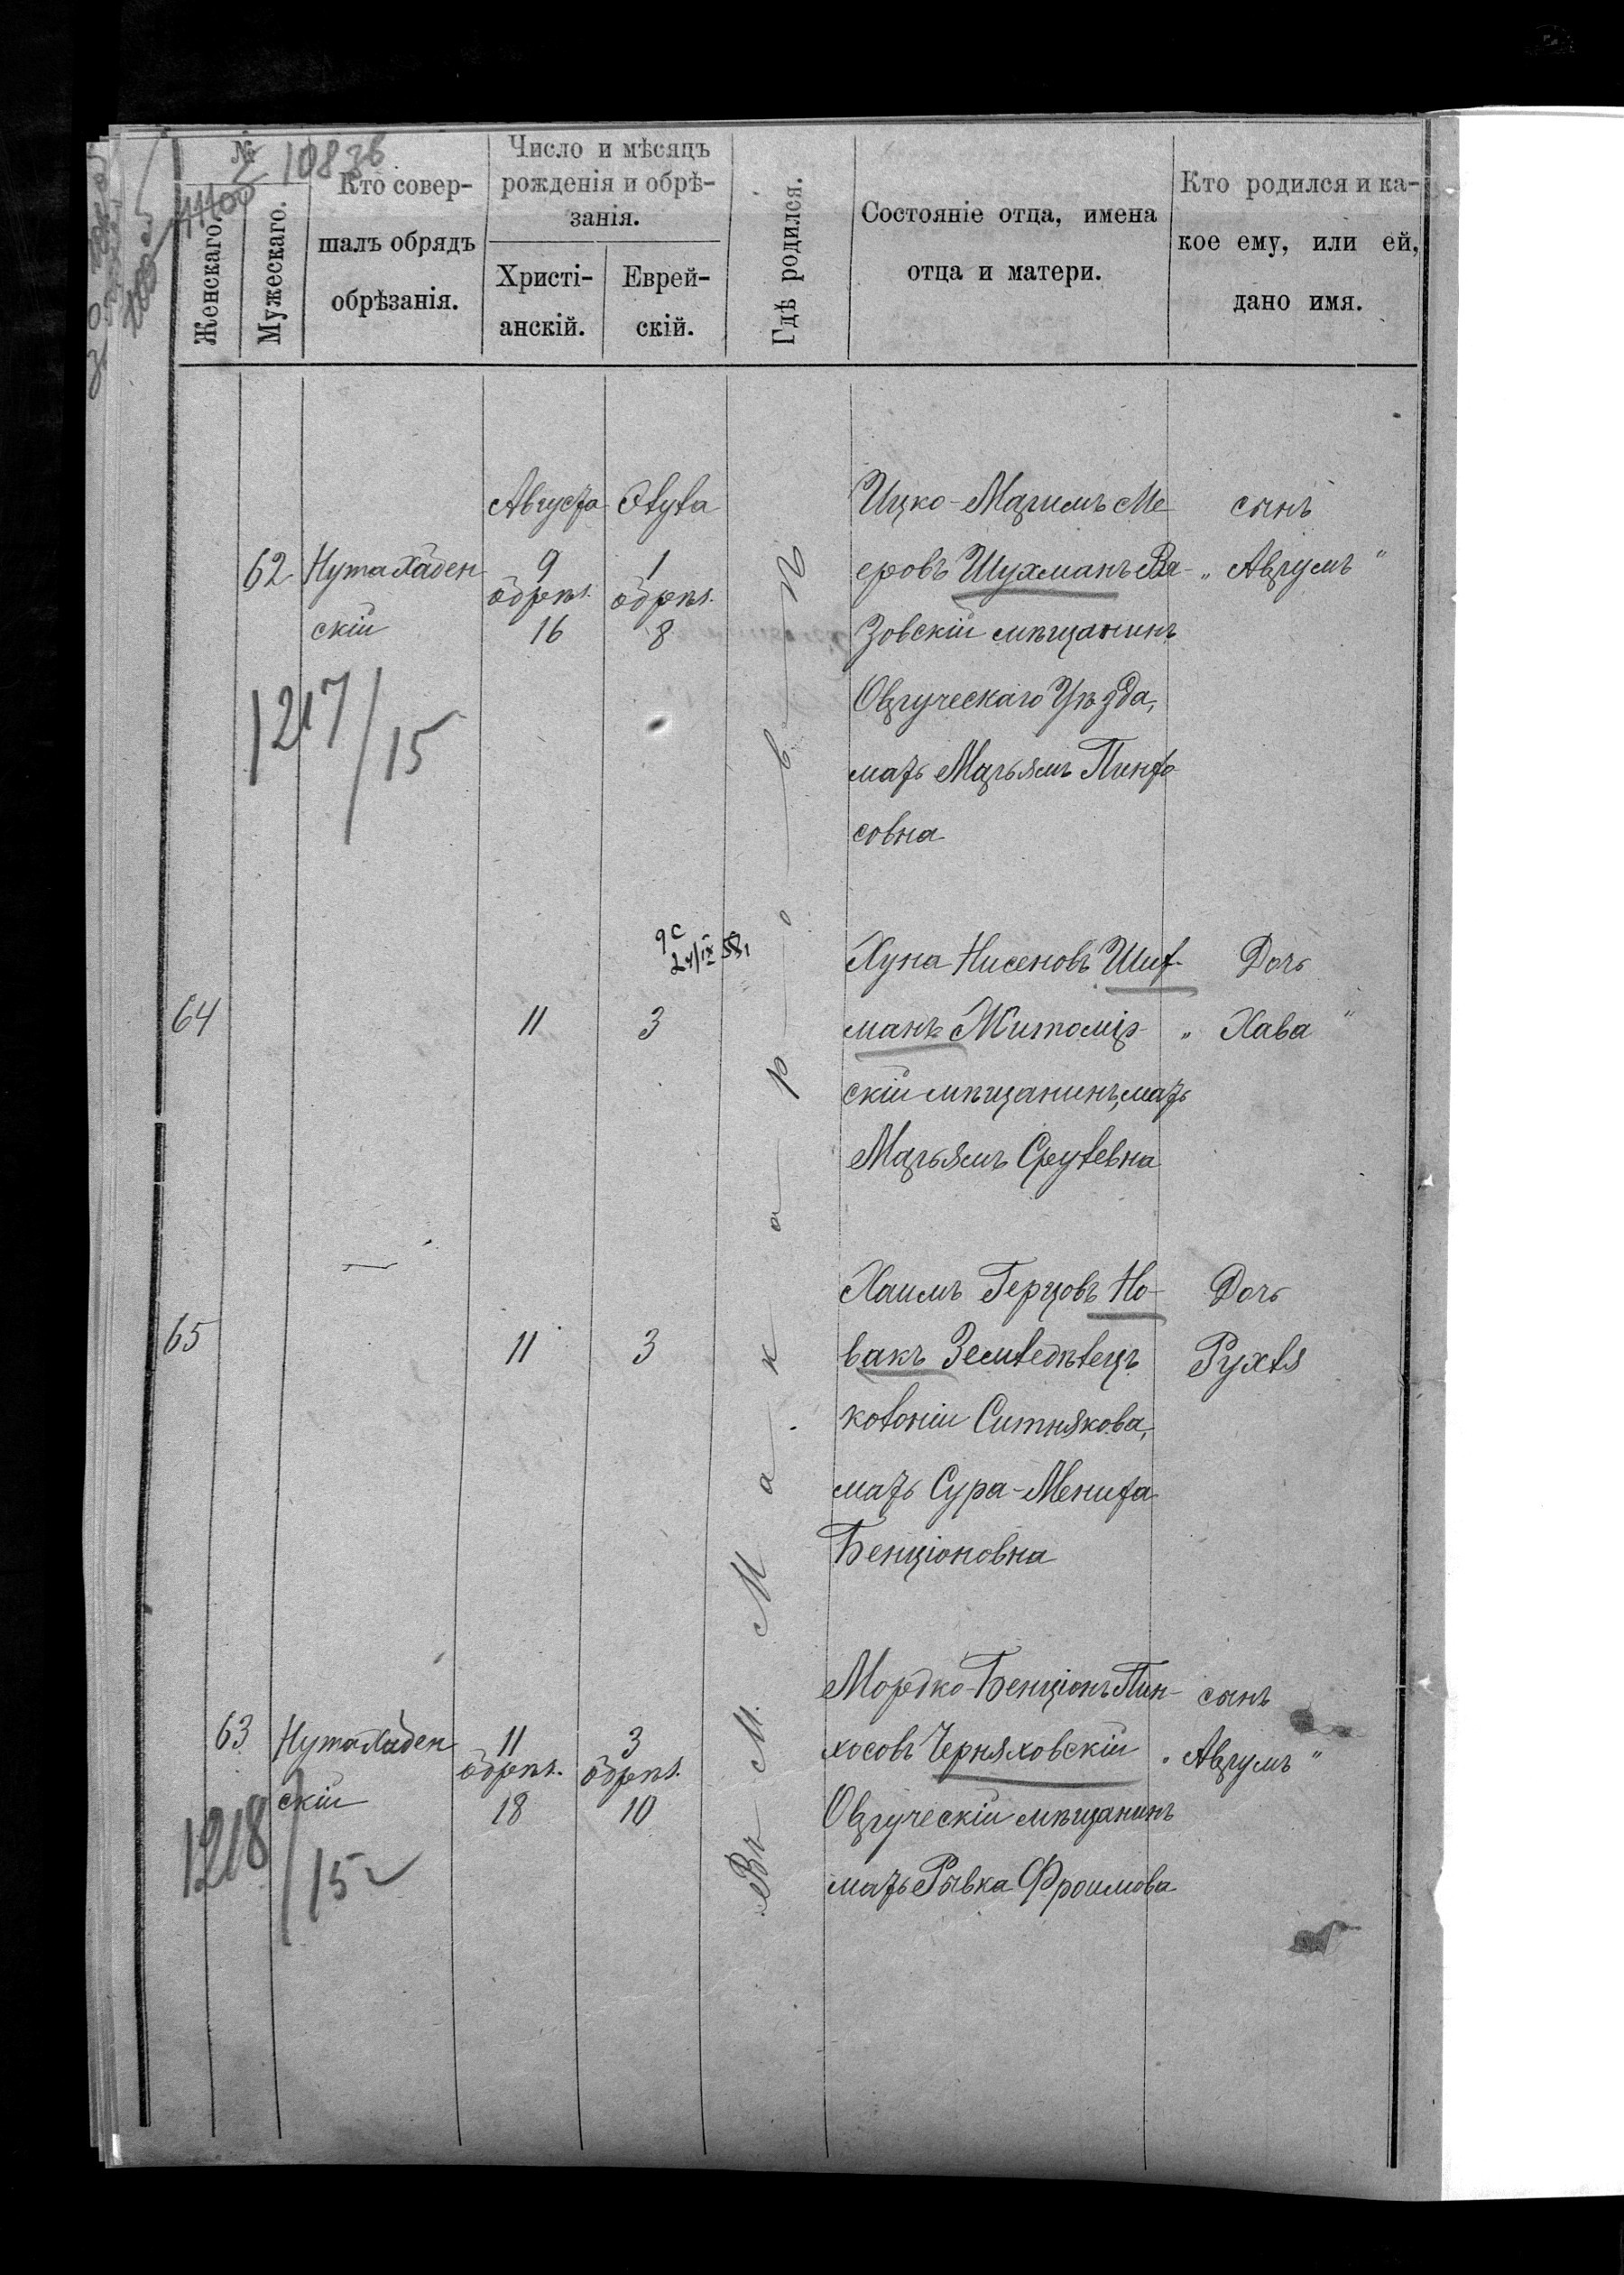 №
10836
Женскаго.
Мужескаго.
Кто совер-
шалъ обрядъ
обрѣзанія.
Число и мѣсяцъ
рожденія и обрѣ-
занія.
Христі-
анскій.
Еврей-
скій.
Гдѣ родился.
Состояніе отца, имена
отца и матери.
Кто родился и ка-
кое ему, или ей,
дано имя.
Въ М. Макаровѣ
Августа Элула
62 Нута Хаден
скій
9 1
обрѣз. обрѣз.
16 8
1217/15
Ицко-Маримъ Ме
еровъ Шухманъ
зовскій мѣщанинъ
Овруческаго Уѣзда,
мать Марьямъ Пинхо
совна
сынъ
„ Аврумъ "
64 11 3
Хуна Нисеновъ Шиф-
манъ Житомір-
скій мѣщанинъ, мать
Марьямъ Срулевна
Дочь
„ Хава "
65 11 3
Хаимъ Герцовъ Но-
вакъ Земледѣлецъ
колоніи Ситнякова,
мать Сура-Мениха
Бенціоновна
Дочь
Рухля
63 Нута Хаден
скій
11 3
обрѣз. обрѣз.
18 10
1218/15
Мордко-Бенціонъ Пин-
хосовъ Черняховскій
Овруческій мѣщанинъ
мать Рывка Фроимова
сынъ
„ Аврумъ "